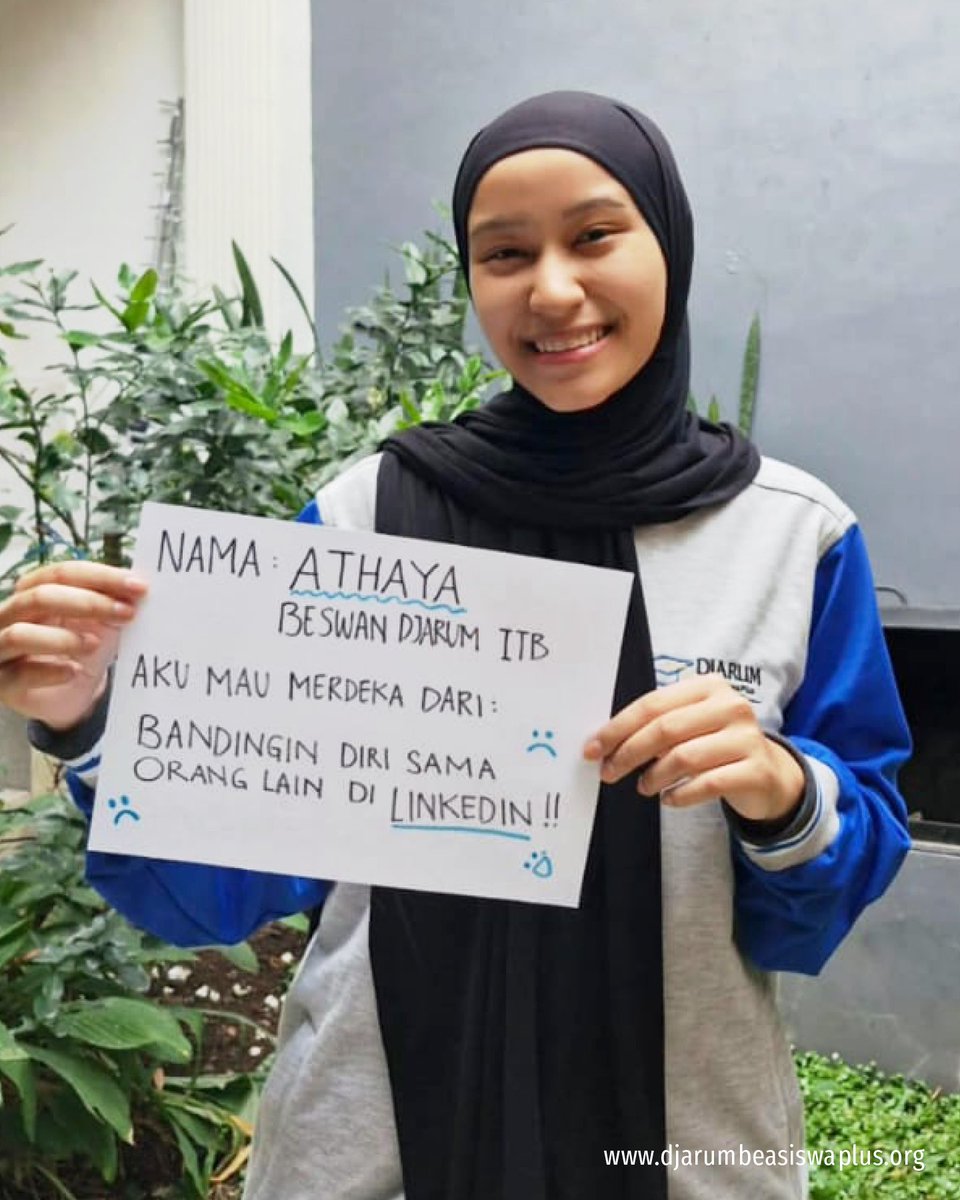 NAMA: ATHAYA
BESWAN DJARUM ITB
AKU MAU MERDEKA DARI:
BANDINGIN DIRI SAMA
ORANG LAIN DI LINKEDIN!!
DJARUM
www.djarumbeasiswaplus.org